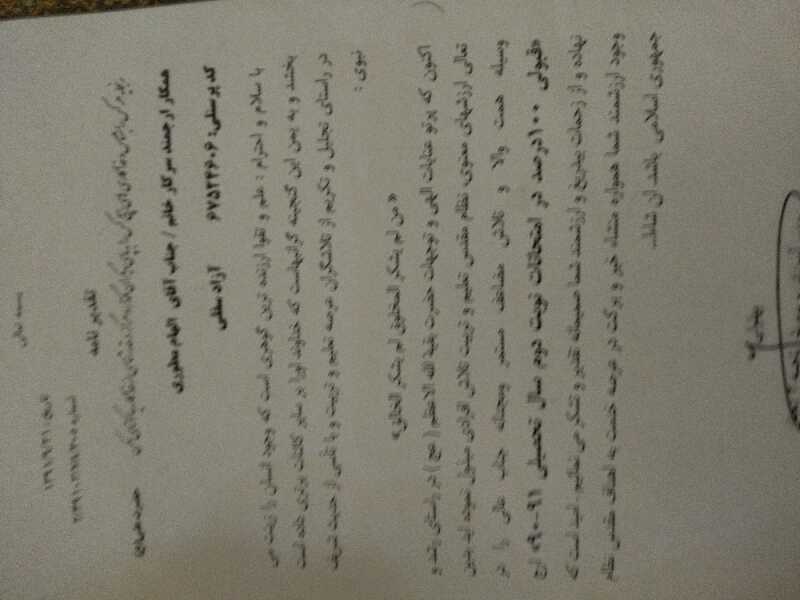 بسمه تعالی
تاریخ: ۱۳۹۱/۹/۲۱
تقدیر نامه
همکار ارجمند سرکار خانم / جناب آقای الهام مظفری
کد پرسنلی: ۶۷۵۲۴۶۰۶ آزاد سفلی
با سلام و احترام : علم و تقوا ارزنده ترین گوهری است که وجود انسان را زینت می
بخشد و به یمن این گنجینه گرانبهاست که خداوند اورا بر سایر کائنات برتری داده است
در راستای تجلیل و تکریم از تلاشگران عرصه تعلیم و تربیت و با تأسی از حدیث شریف
نبوی :
«من لم یشکر المخلوق لم یشکر الخالق»
اکنون که پرتو عنایات الهی و توجهات حضرت بقیة الله الاعظم (عج) در راستای رشد و
تعالی ارزشهای معنوی، نظام مقدس تعلیم و تربیت تلاش افزادی مبذول نموده اید بدین
وسیله همت والا و تلاش مضاعف مستمر ومجدانه جناب عالی را در
«قبولی ۱۰۰درصد در امتحانات نوبت دوم سال تحصیلی ۹۱-۹۰» ارج
نهاده و از زحمات بیدریغ و ارزشمند شما صمیمانه تقدیر و تشکر می نمائیم. امید است که
وجود ارزشمند شما همواره منشاء خیر و برکت در عرصه خدمت به اهداف مقدس نظام
جمهوری اسلامی باشد.ان شاءا...